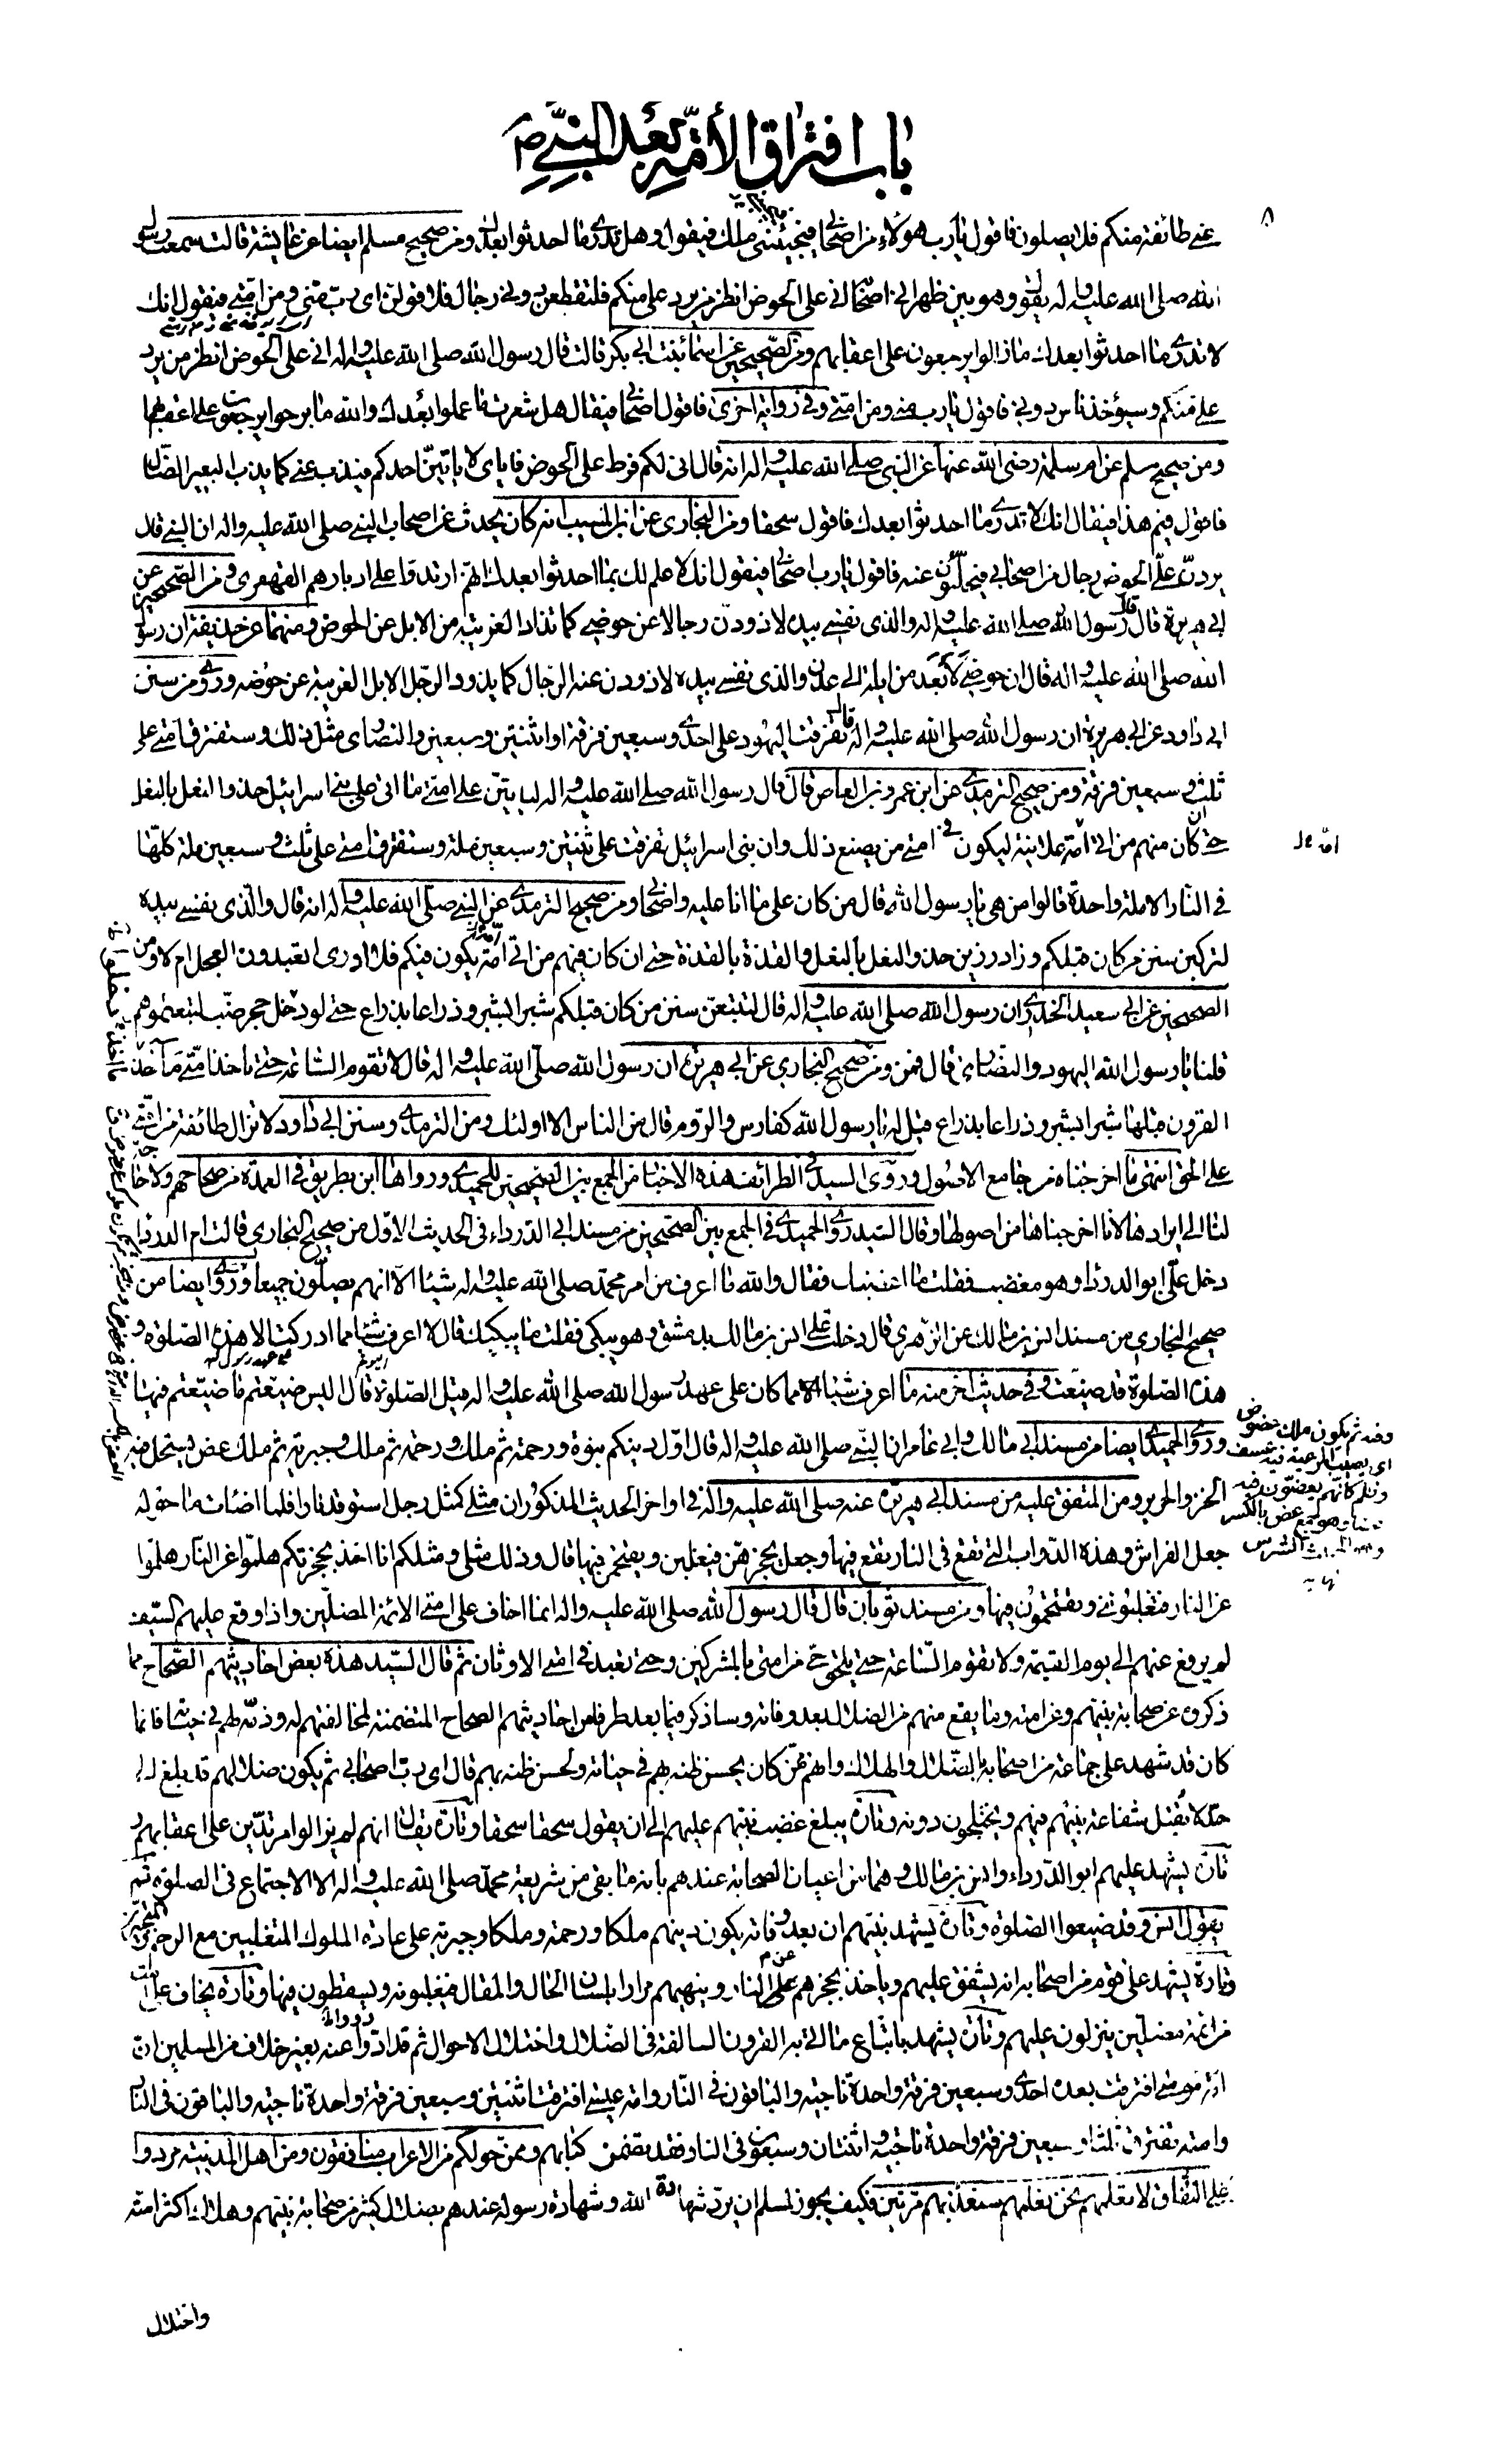 باب افتراق الأمة بعد النبي ص
٨
عني طائفة منكم فلا يصلون فاقول يا رب هؤلاء من اصحابي فيجيئني ملك فيقول وهل تدري ما احدثوا بعدك ومن صحيح مسلم ايضا عن عايشة قالت سمعت رسول
الله صلى الله عليه واله يقول وهو بين ظهراني اصحابه اني على الحوض انظر من يرد على منكم فلتقطعن دوني رجال فلاقولن اى رب مني ومن امتي فيقول انك
لا تدري ما احدثوا بعدك ما زالوا يرجعون على اعقابهم ومن الصحيحين عن اسماء بنت ابي بكر قالت قال رسول الله صلى الله عليه واله اني على الحوض انظر من يرد
علي منكم وسيؤخذ ناس دوني فاقول يا رب مني ومن امتي وفي رواية اخرى فاقول اصحابي فيقال هل شعرت ما عملوا بعدك والله ما برحوا يرجعون على اعقابهم
ومن صحيح مسلم عن ام سلمة رضي الله عنها عن النبي صلى الله عليه واله انه قال اني لكم فرط على الحوض فاياي لا ياتين احدكم فيذب عني كما يذب البعير الضال
فاقول فيم هذا فيقال انك لا تدري ما احدثوا بعدك فاقول سحقا ومن البخاري عن ابن المسيب انه كان يحدث عن اصحاب النبي صلى الله عليه واله ان النبي قال
يرد علي الحوض رجال من اصحابي فيحلئون عنه فاقول يا رب اصحابي فيقول انك لا علم لك بما احدثوا بعدك انهم ارتدوا على ادبارهم القهقرى ومن الصحيحين عن
ابي هريرة قال قال رسول الله صلى الله عليه واله والذي نفسي بيده لاذودن رجالا عن حوضي كما تذاد الغريبة من الابل عن الحوض ومنهما عن حذيفة ان رسول
الله صلى الله عليه واله قال ان حوضي لابعد من ايلة الى عدن والذي نفسي بيده لاذودن عنه الرجال كما يذود الرجل الابل الغريبة عن حوضه وروي من سنن
ابي داود عن ابي هريرة ان رسول الله صلى الله عليه واله قال تفرقت اليهود على احدى وسبعين فرقة او اثنتين وسبعين والنصارى مثل ذلك وستفترق امتي على
ثلث وسبعين فرقة ومن صحيح الترمذي عن ابن عمرو بن العاص قال قال رسول الله صلى الله عليه واله لياتين على امتي ما اتى على بني اسرائيل حذو النعل بالنعل
حتى ان كان منهم من اتى امه علانية ليكون في امتي من يصنع ذلك وان بني اسرائيل تفرقت على ثنتين وسبعين ملة وستفترق امتي على ثلث وسبعين ملة كلها
في النار الا ملة واحدة قالوا من هي يا رسول الله قال من كان على ما انا عليه واصحابي ومن صحيح الترمذي عن النبي صلى الله عليه واله انه قال والذي نفسي بيده
لتركبن سنن من كان قبلكم وزاد رزين حذو النعل بالنعل والقذة بالقذة حتى ان كان فيهم من اتى امه يكون فيكم فلا ادري اتعبدون العجل ام لا ومن
الصحيحين عن ابي سعيد الخدري ان رسول الله صلى الله عليه واله قال لتتبعن سنن من كان قبلكم شبرا بشبر وذراعا بذراع حتى لو دخل جحر ضب لتبعتموهم
قلنا يا رسول الله اليهود والنصارى قال فمن ومن صحيح البخاري عن ابي هريرة ان رسول الله صلى الله عليه واله قال لا تقوم الساعة حتى تاخذ امتي ما اخذ
القرون قبلها شبرا بشبر وذراعا بذراع قيل له يا رسول الله كفارس والروم قال من الناس الا اولئك ومن الترمذي وسنن ابي داود لا تزال طائفة من امتي
على الحق انتهى ما اخرجناه من جامع الاصول وروى السيد في الطرائف هذه الاخبار من الجمع بين الصحيحين للحميدي ورواها ابن بطريق في العمدة من صحاحهم ولا حاجة
لنا الى ايرادها لانا اخرجناها من اصولها وقال السيد روى الحميدي في الجمع بين الصحيحين من مسند ابي الدرداء في الحديث الاول من صحيح البخاري قالت ام الدرداء
دخل علي ابو الدرداء وهو مغضب فقلت ما اغضبك فقال والله ما اعرف من امر محمد صلى الله عليه واله شيئا الا انهم يصلون جميعا وروى ايضا من
صحيح البخاري من مسند انس بن مالك عن الزهري قال دخلت على انس بن مالك بدمشق وهو يبكي فقلت ما يبكيك قال لا اعرف شيئا مما ادركت الا هذه الصلوة و
هذه الصلوة قد ضيعت وفي حديث اخر منه ما اعرف شيئا مما كان على عهد رسول الله صلى الله عليه واله قيل الصلوة قال اليس ضيعتم ما ضيعتم فيها
وروى الحميدي ايضا من مسند ابي مالك وابي عامر ان النبي صلى الله عليه واله قال اول دينكم نبوة ورحمة ثم ملك ورحمة ثم ملك وجبرية ثم ملك عض يستحل فيه
الخز والحرير ومن المتفق عليه من مسند ابي هريرة عنه صلى الله عليه واله في اواخر الحديث المذكور ان مثلي كمثل رجل استوقد نارا فلما اضاءت ما حوله
جعل الفراش وهذه الدواب التي تقع في النار يقع فيها وجعل يحجزهن فيغلبن ويقتحمن فيها قال وذلك مثلي ومثلكم انا اخذ بحجزتكم هلموا عن النار هلموا
عن النار فتغلبونني وتقتحمون فيها ومن مسند ثوبان قال قال رسول الله صلى الله عليه واله انما اخاف على امتي الائمة المضلين واذا وقع عليهم السيف
لم يرفع عنهم الى يوم القيمة ولا تقوم الساعة حتى يلحق حي من امتي بالمشركين وحتى تعبد في امتي الاوثان ثم قال السيد هذه بعض احاديثهم الصحاح مما
ذكروه عن صحابة نبيهم وعن امته وما يقع منهم من الضلال بعد وفاته وساذكر فيما بعد طرفا من احاديثهم الصحاح المتضمنة لمخالفتهم له وذمه لهم في حيوته فاذا
كان قد شهد على جماعة من اصحابه بالضلال والهلاك وانهم ممن كان يحسن ظنه بهم في حياته ولحسن ظنه بهم قال اي رب اصحابي ثم يكون ضلالهم قد بلغ الى
حد لا تقبل شفاعة نبيهم فيهم ويختلجون دونه وتارة يبلغ غضب نبيهم عليهم الى ان يقول سحقا سحقا وتارة يقال انهم لم يزالوا مرتدين على اعقابهم و
تارة يشهد عليهم ابو الدرداء وانس بن مالك وهما من اعيان الصحابة عندهم بانه ما بقي من شريعة محمد صلى الله عليه واله الا الاجتماع في الصلوة ثم
يقول انس وقد ضيعوا الصلوة وتارة يشهد نبيهم ان بعد وفاته يكون دينهم ملكا ورحمة وملكا وجبرية على عادة الملوك المتغلبين
وتارة يشهد على قوم من اصحابه انه يشفق عليهم وياخذ بحجزهم عن النار وينهيهم مرارا بلسان الحال والمقال فيغلبونه ويسقطون فيها وتارة يخاف على امته
من ائمة مضلين ينزلون عليهم وتارة يشهد باتباع ما اتى به القرون السالفة في الضلال واختلال الاحوال ثم قد ادوا عنه بغير خلاف من المسلمين ان
امة موسى افترقت بعده احدى وسبعين فرقة واحدة ناجية والباقون في النار وامة عيسى افترقت اثنتين وسبعين فرقة واحدة ناجية والباقون في النار
وامته تفترق ثلثا وسبعين فرقة واحدة ناجية واثنتان وسبعون في النار فقد تضمن كتابهم وممن حولكم من الاعراب منافقون ومن اهل المدينة مردوا
على النفاق لا تعلمهم نحن نعلمهم سنعذبهم مرتين فكيف يجوز لمسلم ان يرد شهادة الله وشهادة رسوله عندهم بضلال كثير من صحابة نبيهم وهلاك اكثر امته
واختلال